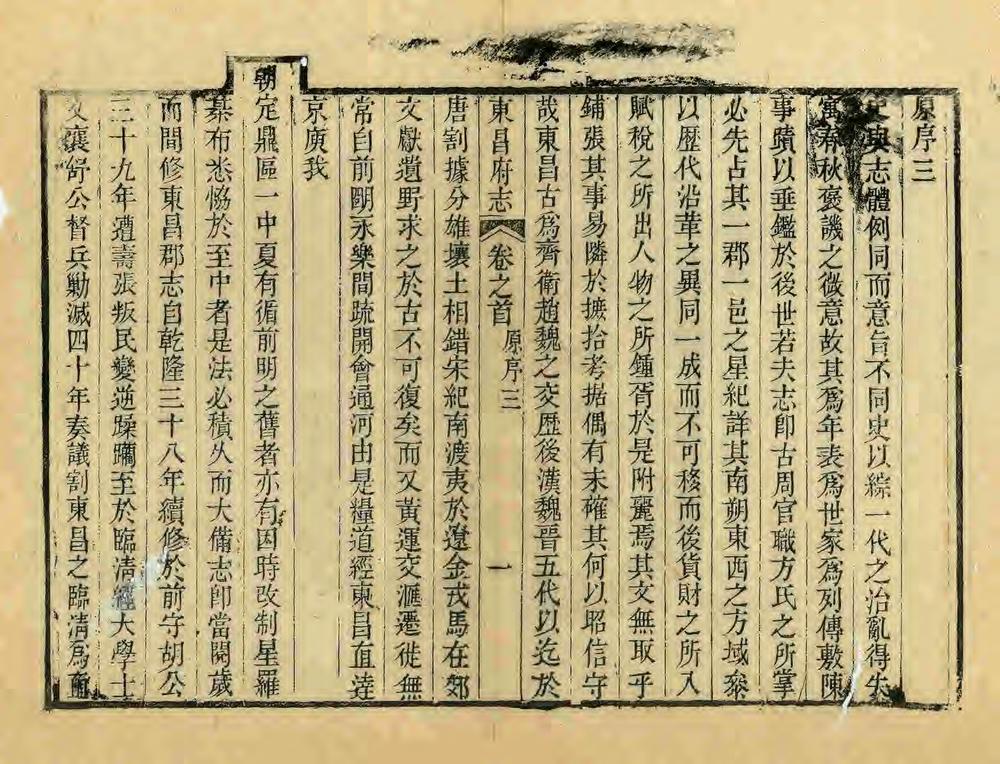 原序三
史與志體例同而意旨不同史以綜一代之治亂得失
寓春秋褒譏之微意故其爲年表爲世家爲列傳敷陳
事蹟以垂鑑於後世若夫志卽古周官職方氏之所掌
必先占其一郡一邑之星紀詳其南朔東西之方域叅
以歷代沿革之異同一成而不可移而後貨財之所入
賦稅之所出人物之所鍾胥於是附麗焉其文無取乎
鋪張其事易隣於摭拾考据偶有未確其何以昭信守
哉東昌古爲齊衛趙魏之交歴後漢魏晉五代以迄於
東昌府志 卷之首 原序三 一
唐割據分雄壤土相錯宋紀南渡夷於遼金戎馬在郊
文獻遺野求之於古不可復矣而又黃運交滙遷徙無
常自前明永樂間疏開會通河由是糧道經東昌直逹
京庾我
朝定鼎區一中夏有循前明之舊者亦有因時改制星羅
棊布悉恊於至中者是法必積久而大備志卽當閱歲
而間修東昌郡志自乾隆三十八年續修於前守胡公
三十九年遭壽張叛民變逆躁躪至於臨清經大學士
文襄舒公督兵勦滅四十年奏議割東昌之臨清爲直